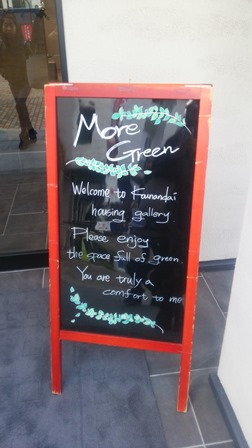 More
Green
Welcome to Kounandai
housing gallery
Please enjoy
the space full of green.
You are truly a
comfort to me